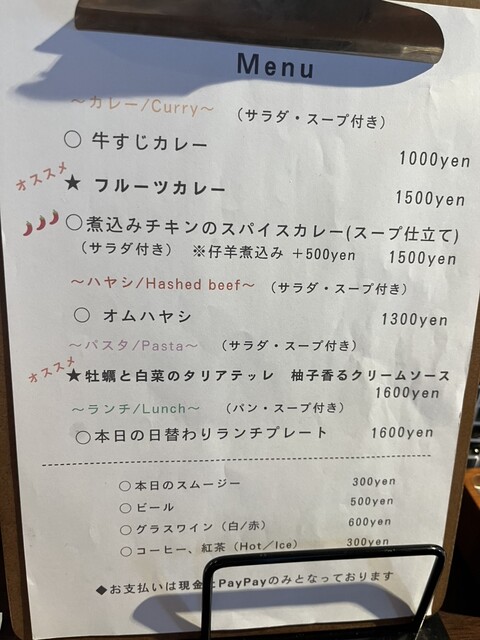 Menu
～カレー/Curry～ （サラダ・スープ付き）
○ 牛すじカレー 1000yen
オススメ ★ フルーツカレー 1500yen
○煮込みチキンのスパイスカレー(スープ仕立て)
（サラダ付き） ※仔羊煮込み +500yen 1500yen
～ハヤシ/Hashed beef～ （サラダ・スープ付き）
○ オムハヤシ 1300yen
～パスタ/Pasta～ （サラダ・スープ付き）
オススメ ★牡蠣と白菜のタリアテッレ 柚子香るクリームソース
1600yen
～ランチ/Lunch～ （パン・スープ付き）
○本日の日替わりランチプレート 1600yen
○本日のスムージー 300yen
○ビール 500yen
○グラスワイン（白/赤） 600yen
○コーヒー、紅茶（Hot／Ice） 300yen
◆お支払いは現金とPayPayのみとなっております